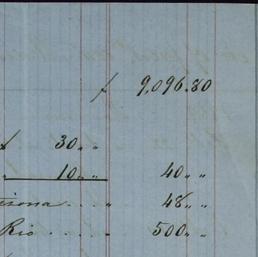 f 9,096.80
f 30 „ „
10 „ „ 40 „ „
48 „ „
Rio . . . . 500 „ „